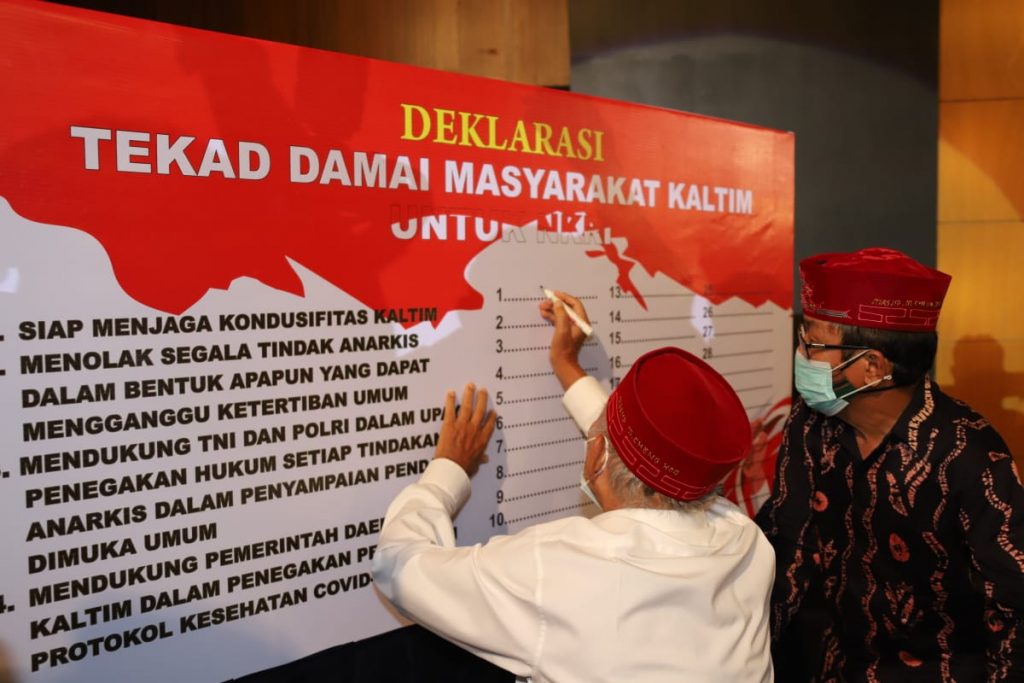 DEKLARASI
TEKAD DAMAI MASYARAKAT KALTIM
UNTUK NKRI
SIAP MENJAGA KONDUSIFITAS KALTIM
MENOLAK SEGALA TINDAK ANARKIS
DALAM BENTUK APAPUN YANG DAPAT
MENGGANGGU KETERTIBAN UMUM
MENDUKUNG TNI DAN POLRI DALAM
PENEGAKAN HUKUM SETIAP TINDAKAN
ANARKIS DALAM PENYAMPAIAN
DIMUKA UMUM
4. MENDUKUNG PEMERINTAH
KALTIM DALAM PENEGAKAN
PROTOKOL KESEHATAN
1
2
3
4
5
6
7
8
9
10
13
14
15
16
26
27
28